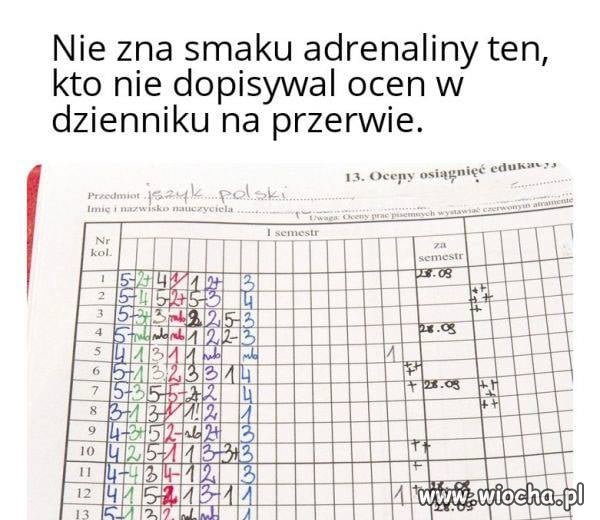 Nie zna smaku adrenaliny ten,
kto nie dopisywal ocen w
dzienniku na przerwie.
13. Oceny osiągnięć
Przedmiot język polski
Imię i nazwisko nauczyciela
Uwaga: Oceny prac pisemnych wystawiać czerwonym atramente
Nr kol.
I semestr
za semestr
1 5- 2+ 4 1 1 2+ 3 28.09
2 5- 4 5- 2+ 5- 3 4
3 5- 3+ 3 nb 2 2 5- 3
4 5- nb nb nb 1 2 2- 3 28.09
5 4 1 3 1 1 nb nb 1
6 5- 1 3 2 3 3 1 4 ++
7 5- 3 5 5- 2 4 + 28.09
8 3- 1 3 1! 2 1
9 4- 3+ 5 2- nb 2+ 3
10 4 2 5- 1 1 3- 3+ 3 ++
11 4- 4 3 4- 1 2 3 +
12 4 1 5- 2 1 3- 1 1 1
13 5- 1 3 2 nb nb 1 28.09
www.wiocha.pl